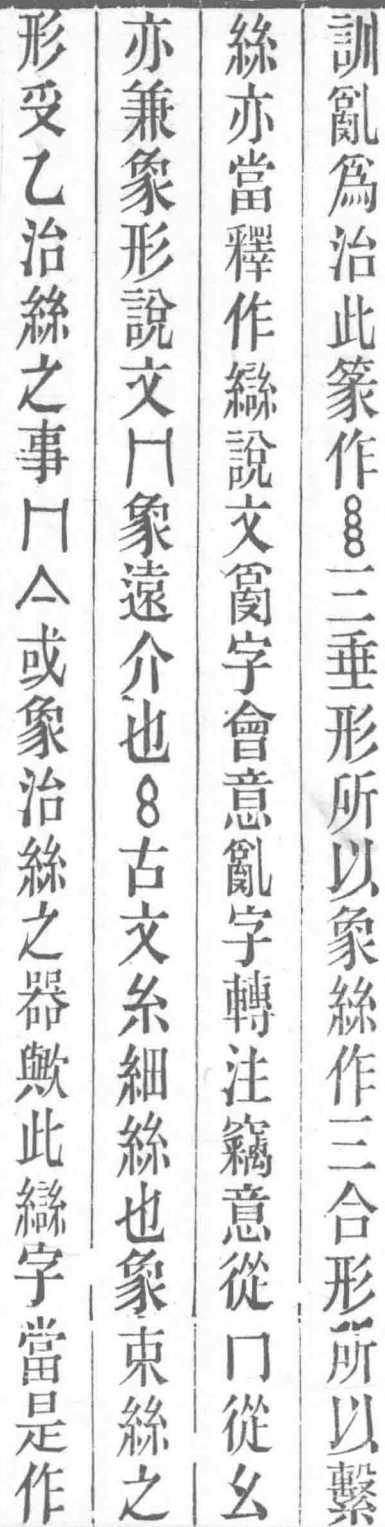 訓亂爲治此篆作三垂形所以象絲作三合形所以繫
絲亦當釋作說文𤔔字會意亂字轉注竊意從冂從幺
亦兼象形說文冂象遠介也8古文糸細絲也象束絲之
形𠬪乙治絲之事冂亼或象治絲之器歟此字當是作